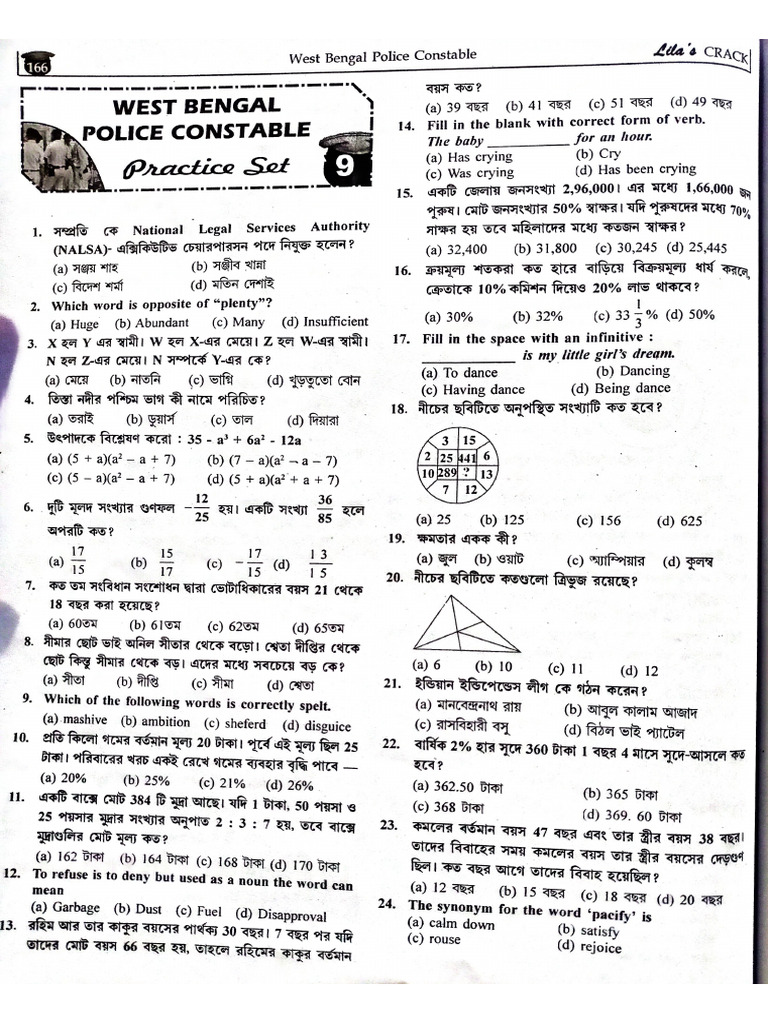 166
West Bengal Police Constable
Lila's CRACK
WEST BENGAL
POLICE CONSTABLE
Practice Set
9
1. সম্প্রতি কে National Legal Services Authority
(NALSA)- এক্সিকিউটিভ চেয়ারপারসন পদে নিযুক্ত হলেন?
(a) সঞ্জয় শাহ (b) সঞ্জীব খান্না
(c) বিদেশ শর্মা (d) মতিন দেশাই
2. Which word is opposite of “plenty”?
(a) Huge (b) Abundant (c) Many (d) Insufficient
3. X হল Y এর স্বামী। W হল X-এর মেয়ে। Z হল W-এর স্বামী।
N হল Z-এর মেয়ে। N সম্পর্কে Y-এর কে?
(a) মেয়ে (b) নাতনি (c) ভাগ্নি (d) খুড়তুতো বোন
4. তিস্তা নদীর পশ্চিম ভাগ কী নামে পরিচিত?
(a) তরাই (b) ডুয়ার্স (c) তাল (d) দিয়ারা
5. উৎপাদকে বিশ্লেষণ করো : 35 - a³ + 6a² - 12a
(a) (5 + a)(a² – a + 7) (b) (7 – a)(a² – a – 7)
(c) (5 – a)(a² – a + 7) (d) (5 + a)(a² + a + 7)
6. দুটি মূলদ সংখ্যার গুণফল –12/25 হয়। একটি সংখ্যা 36/85 হলে
অপরটি কত?
(a) 17/15 (b) 15/17 (c) –17/15 (d) 13/15
7. কত তম সংবিধান সংশোধন দ্বারা ভোটাধিকারের বয়স 21 থেকে
18 বছর করা হয়েছে?
(a) 60তম (b) 61তম (c) 62তম (d) 65তম
8. সীমার ছোট ভাই অনিল সীতার থেকে বড়ো। শ্বেতা দীপ্তির থেকে
ছোট কিন্তু সীমার থেকে বড়। এদের মধ্যে সবচেয়ে বড় কে?
(a) সীতা (b) দীপ্তি (c) সীমা (d) শ্বেতা
9. Which of the following words is correctly spelt.
(a) mashive (b) ambition (c) sheferd (d) disguice
10. প্রতি কিলো গমের বর্তমান মূল্য 20 টাকা। পূর্বে এই মূল্য ছিল 25
টাকা। পরিবারের খরচ একই রেখে গমের ব্যবহার বৃদ্ধি পাবে —
(a) 20% (b) 25% (c) 21% (d) 26%
11. একটি বাক্সে মোট 384 টি মুদ্রা আছে। যদি 1 টাকা, 50 পয়সা ও
25 পয়সার মুদ্রার সংখ্যার অনুপাত 2 : 3 : 7 হয়, তবে বাক্সে
মুদ্রাগুলির মোট মূল্য কত?
(a) 162 টাকা (b) 164 টাকা (c) 168 টাকা (d) 170 টাকা
12. To refuse is to deny but used as a noun the word can
mean
(a) Garbage (b) Dust (c) Fuel (d) Disapproval
13. রহিম আর তার কাকুর বয়সের পার্থক্য 30 বছর। 7 বছর পর যদি
তাদের মোট বয়স 66 বছর হয়, তাহলে রহিমের কাকুর বর্তমান
বয়স কত?
(a) 39 বছর (b) 41 বছর (c) 51 বছর (d) 49 বছর
14. Fill in the blank with correct form of verb.
The baby __________ for an hour.
(a) Has crying (b) Cry
(c) Was crying (d) Has been crying
15. একটি জেলায় জনসংখ্যা 2,96,000। এর মধ্যে 1,66,000 জন
পুরুষ। মোট জনসংখ্যার 50% স্বাক্ষর। যদি পুরুষদের মধ্যে 70%
সাক্ষর হয় তবে মহিলাদের মধ্যে কতজন স্বাক্ষর?
(a) 32,400 (b) 31,800 (c) 30,245 (d) 25,445
16. ক্রয়মূল্য শতকরা কত হারে বাড়িয়ে বিক্রয়মূল্য ধার্য করলে,
ক্রেতাকে 10% কমিশন দিয়েও 20% লাভ থাকবে?
(a) 30% (b) 32% (c) 33 1/3 % (d) 50%
17. Fill in the space with an infinitive :
__________ is my little girl's dream.
(a) To dance (b) Dancing
(c) Having dance (d) Being dance
18. নীচের ছবিটিতে অনুপস্থিত সংখ্যাটি কত হবে?
3 15
2 25 441 6
10 289 ? 13
7 12
(a) 25 (b) 125 (c) 156 (d) 625
19. ক্ষমতার একক কী?
(a) জুল (b) ওয়াট (c) অ্যাম্পিয়ার (d) কুলম্ব
20. নীচের ছবিটিতে কতগুলো ত্রিভুজ রয়েছে?
(a) 6 (b) 10 (c) 11 (d) 12
21. ইন্ডিয়ান ইন্ডিপেন্ডেন্স লীগ কে গঠন করেন?
(a) মানবেন্দ্রনাথ রায় (b) আবুল কালাম আজাদ
(c) রাসবিহারী বসু (d) বিঠল ভাই প্যাটেল
22. বার্ষিক 2% হার সুদে 360 টাকা 1 বছর 4 মাসে সুদে-আসলে কত
হবে?
(a) 362.50 টাকা (b) 365 টাকা
(c) 368 টাকা (d) 369. 60 টাকা
23. কমলের বর্তমান বয়স 47 বছর এবং তার স্ত্রীর বয়স 38 বছর।
তাদের বিবাহের সময় কমলের বয়স তার স্ত্রীর বয়সের দেড়গুণ
ছিল। কত বছর আগে তাদের বিবাহ হয়েছিল?
(a) 12 বছর (b) 15 বছর (c) 18 বছর (d) 20 বছর
24. The synonym for the word ‘pacify’ is
(a) calm down (b) satisfy
(c) rouse (d) rejoice